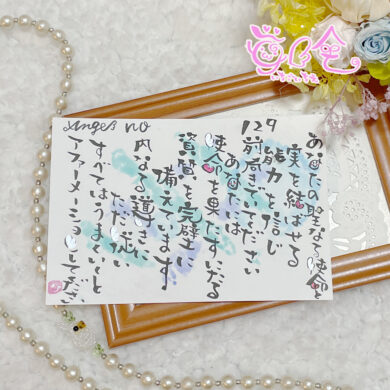 Angel no
129
あなたの聖なる使命と
実を結ばせる
能力を信じ
前向きでいてください
あなたは
使命を果たすに足る
資質を完璧に
備えています
内なる導きに
ただ従い
すべてはうまくいくと
アファーメーションしてください